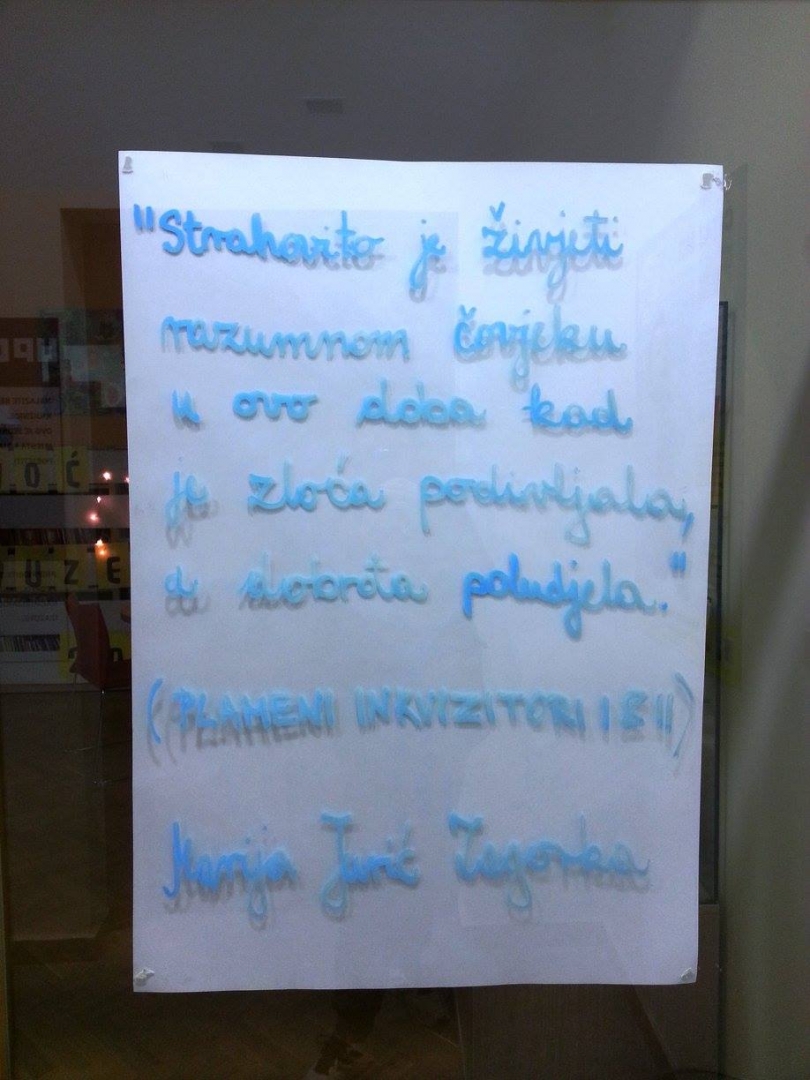 "Strahovito je živjeti
razumnom čovjeku
u ovo doba kad
je zloća podivljala,
a dobrota poludjela."
(PLAMENI INKVIZITORI I & II)
Marija Jurić Zagorka